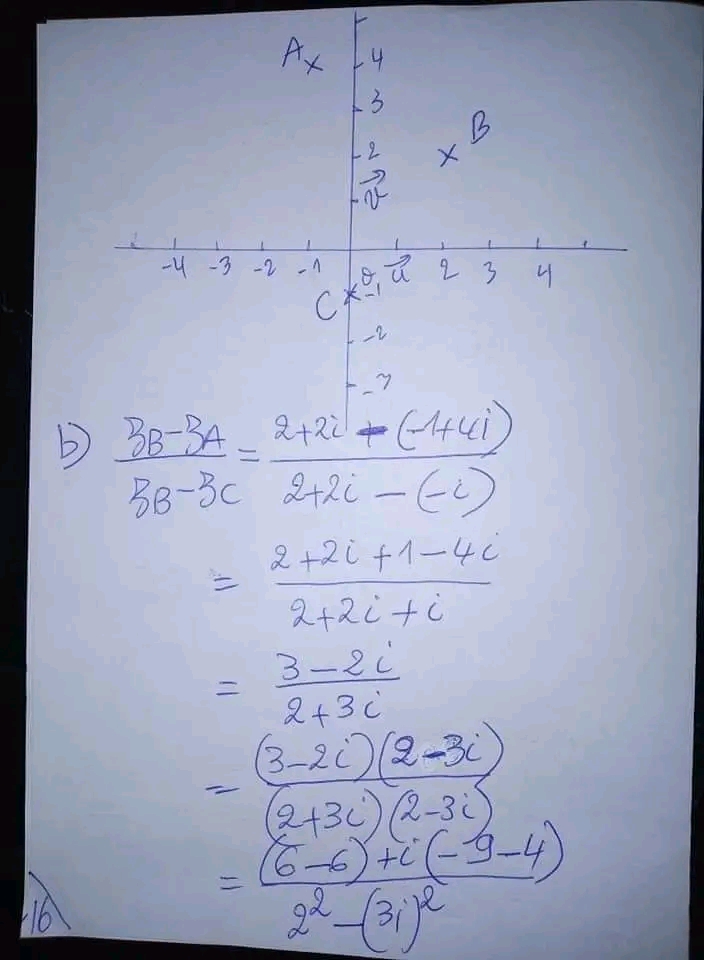 A× 4
3
B
× 2
v⃗
-4 -3 -2 -1 0 u⃗ 2 3 4
C × -1
-2
-3
b) (3B-3A)/(3B-3C) = (2+2i - (-1+4i))/(2+2i - (-i))
= (2+2i+1-4i)/(2+2i+i)
= (3-2i)/(2+3i)
= ((3-2i)(2-3i))/((2+3i)(2-3i))
= ((6-6)+i(-9-4))/(2²-(3i)²)
16